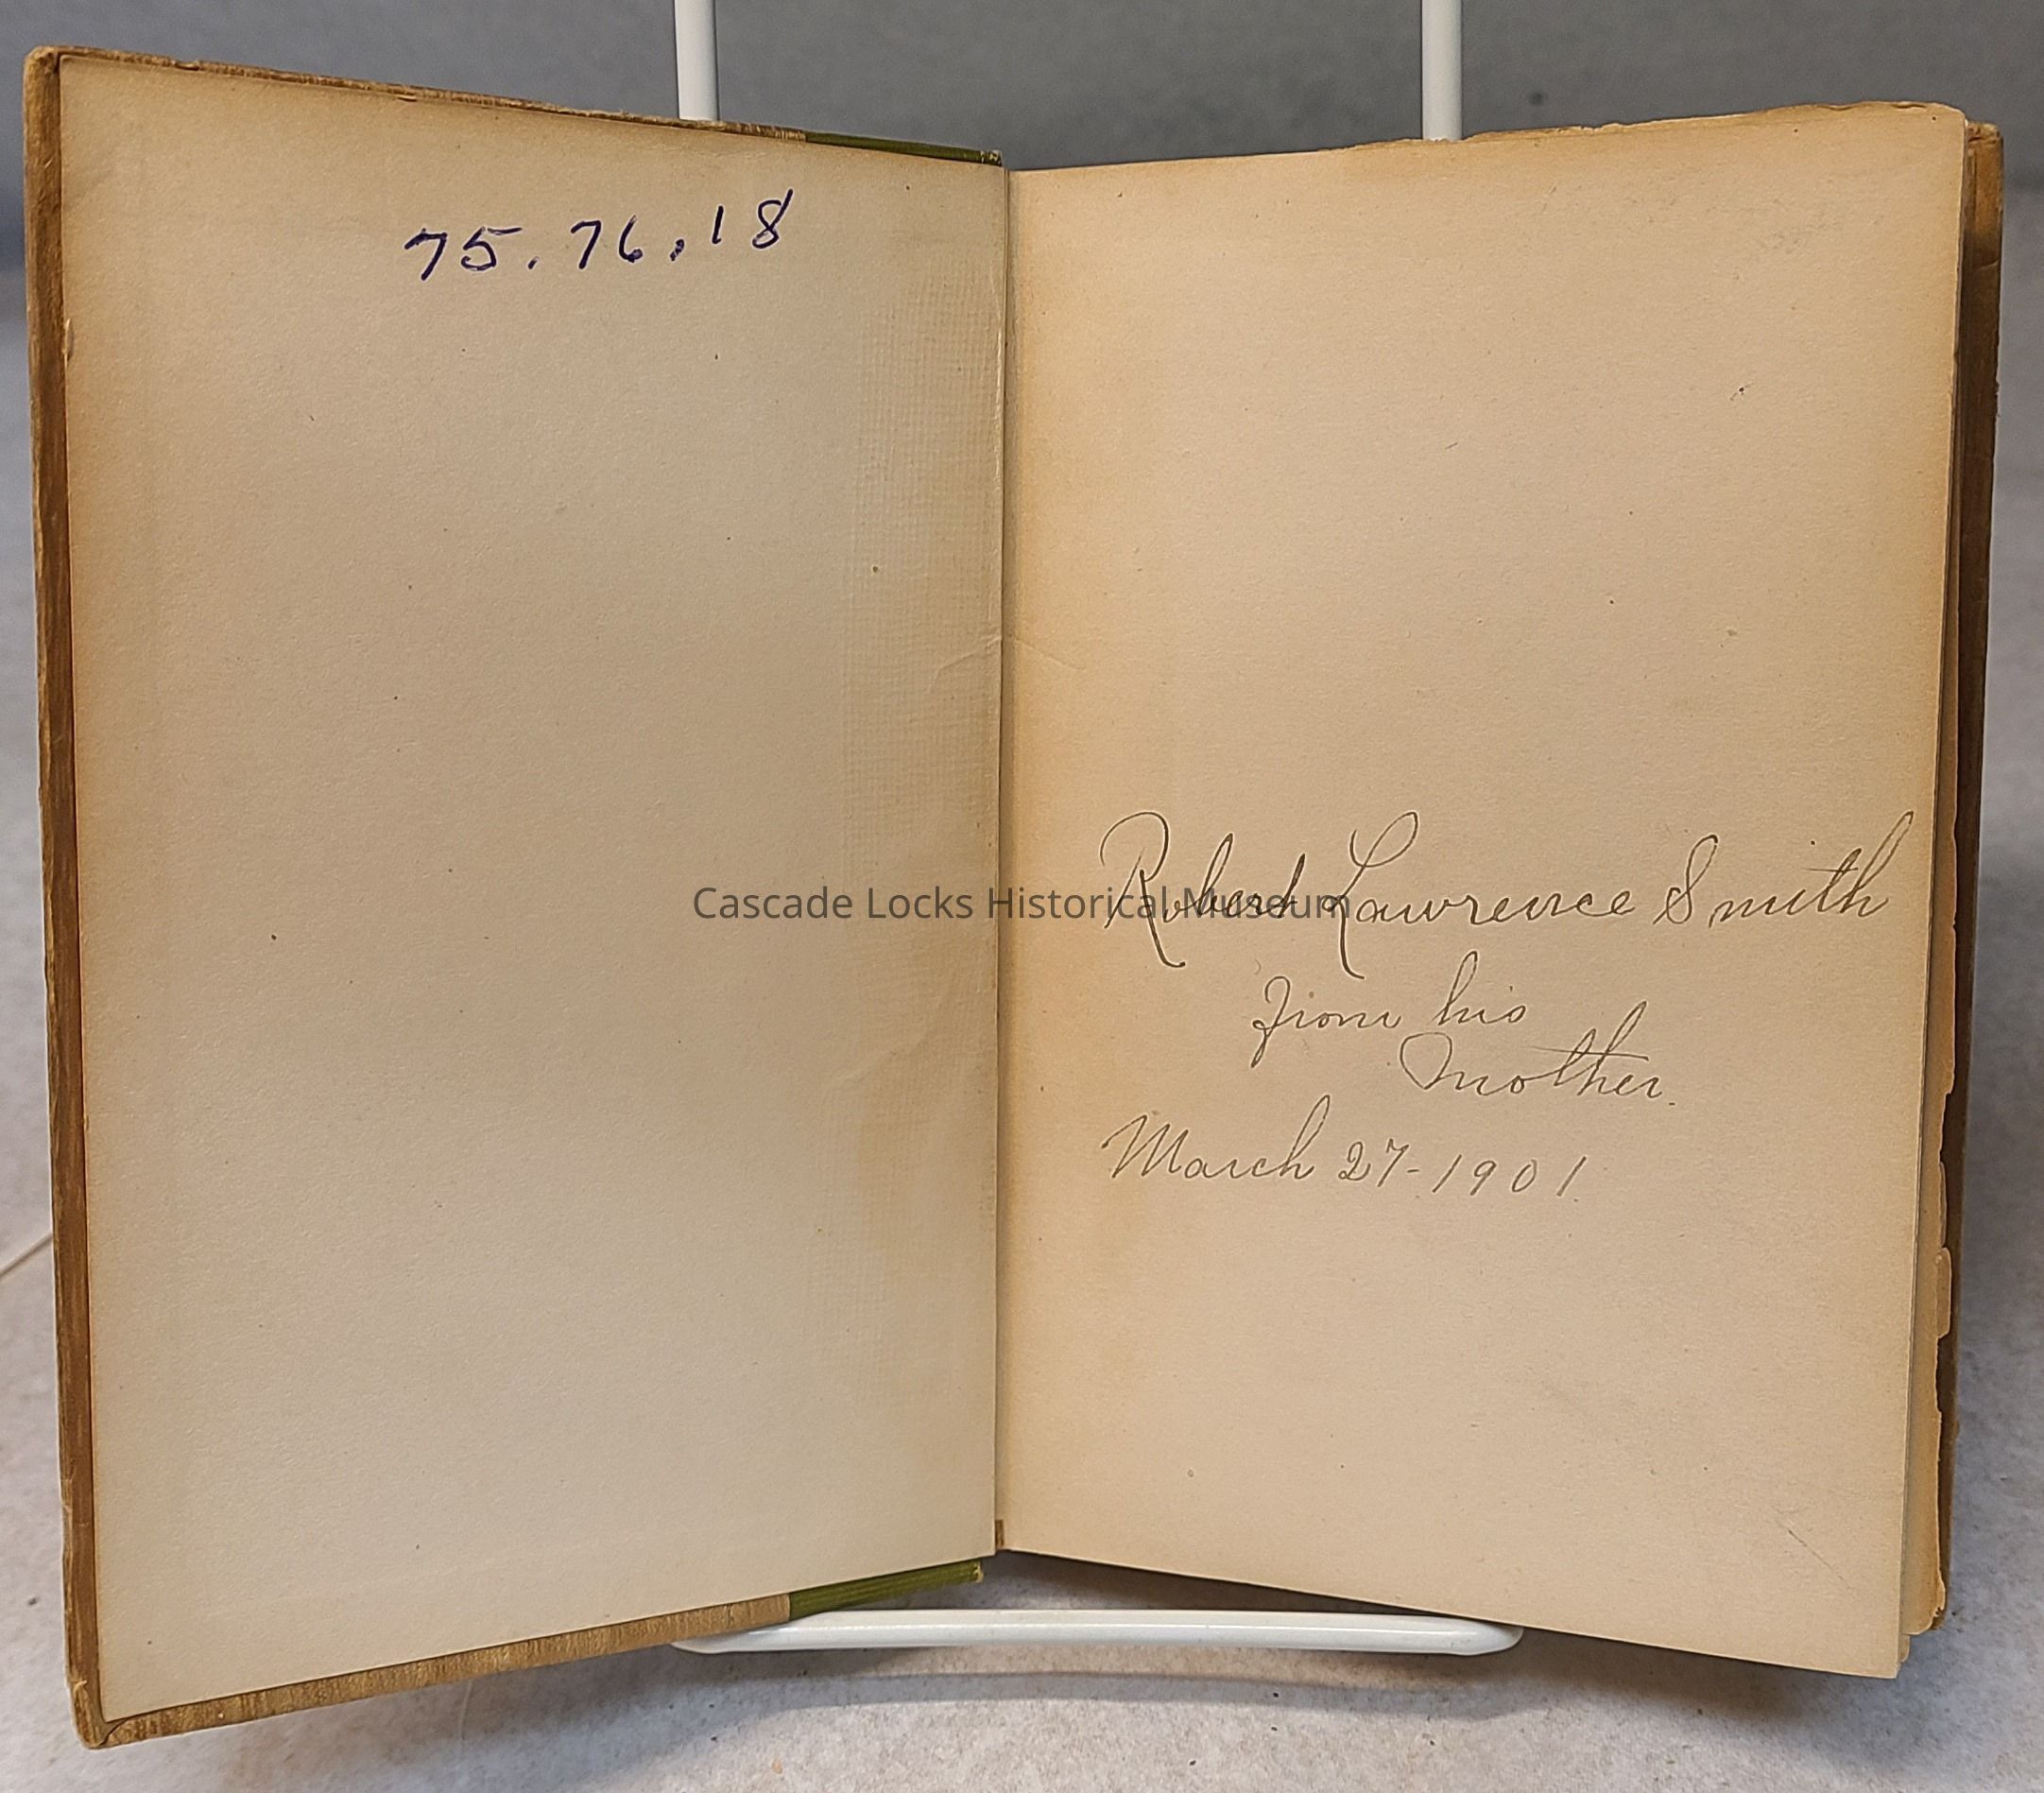 75.76.18
Cascade Locks Historical Museum
Robert Lawrence Smith
From his
Mother.
March 27-1901.